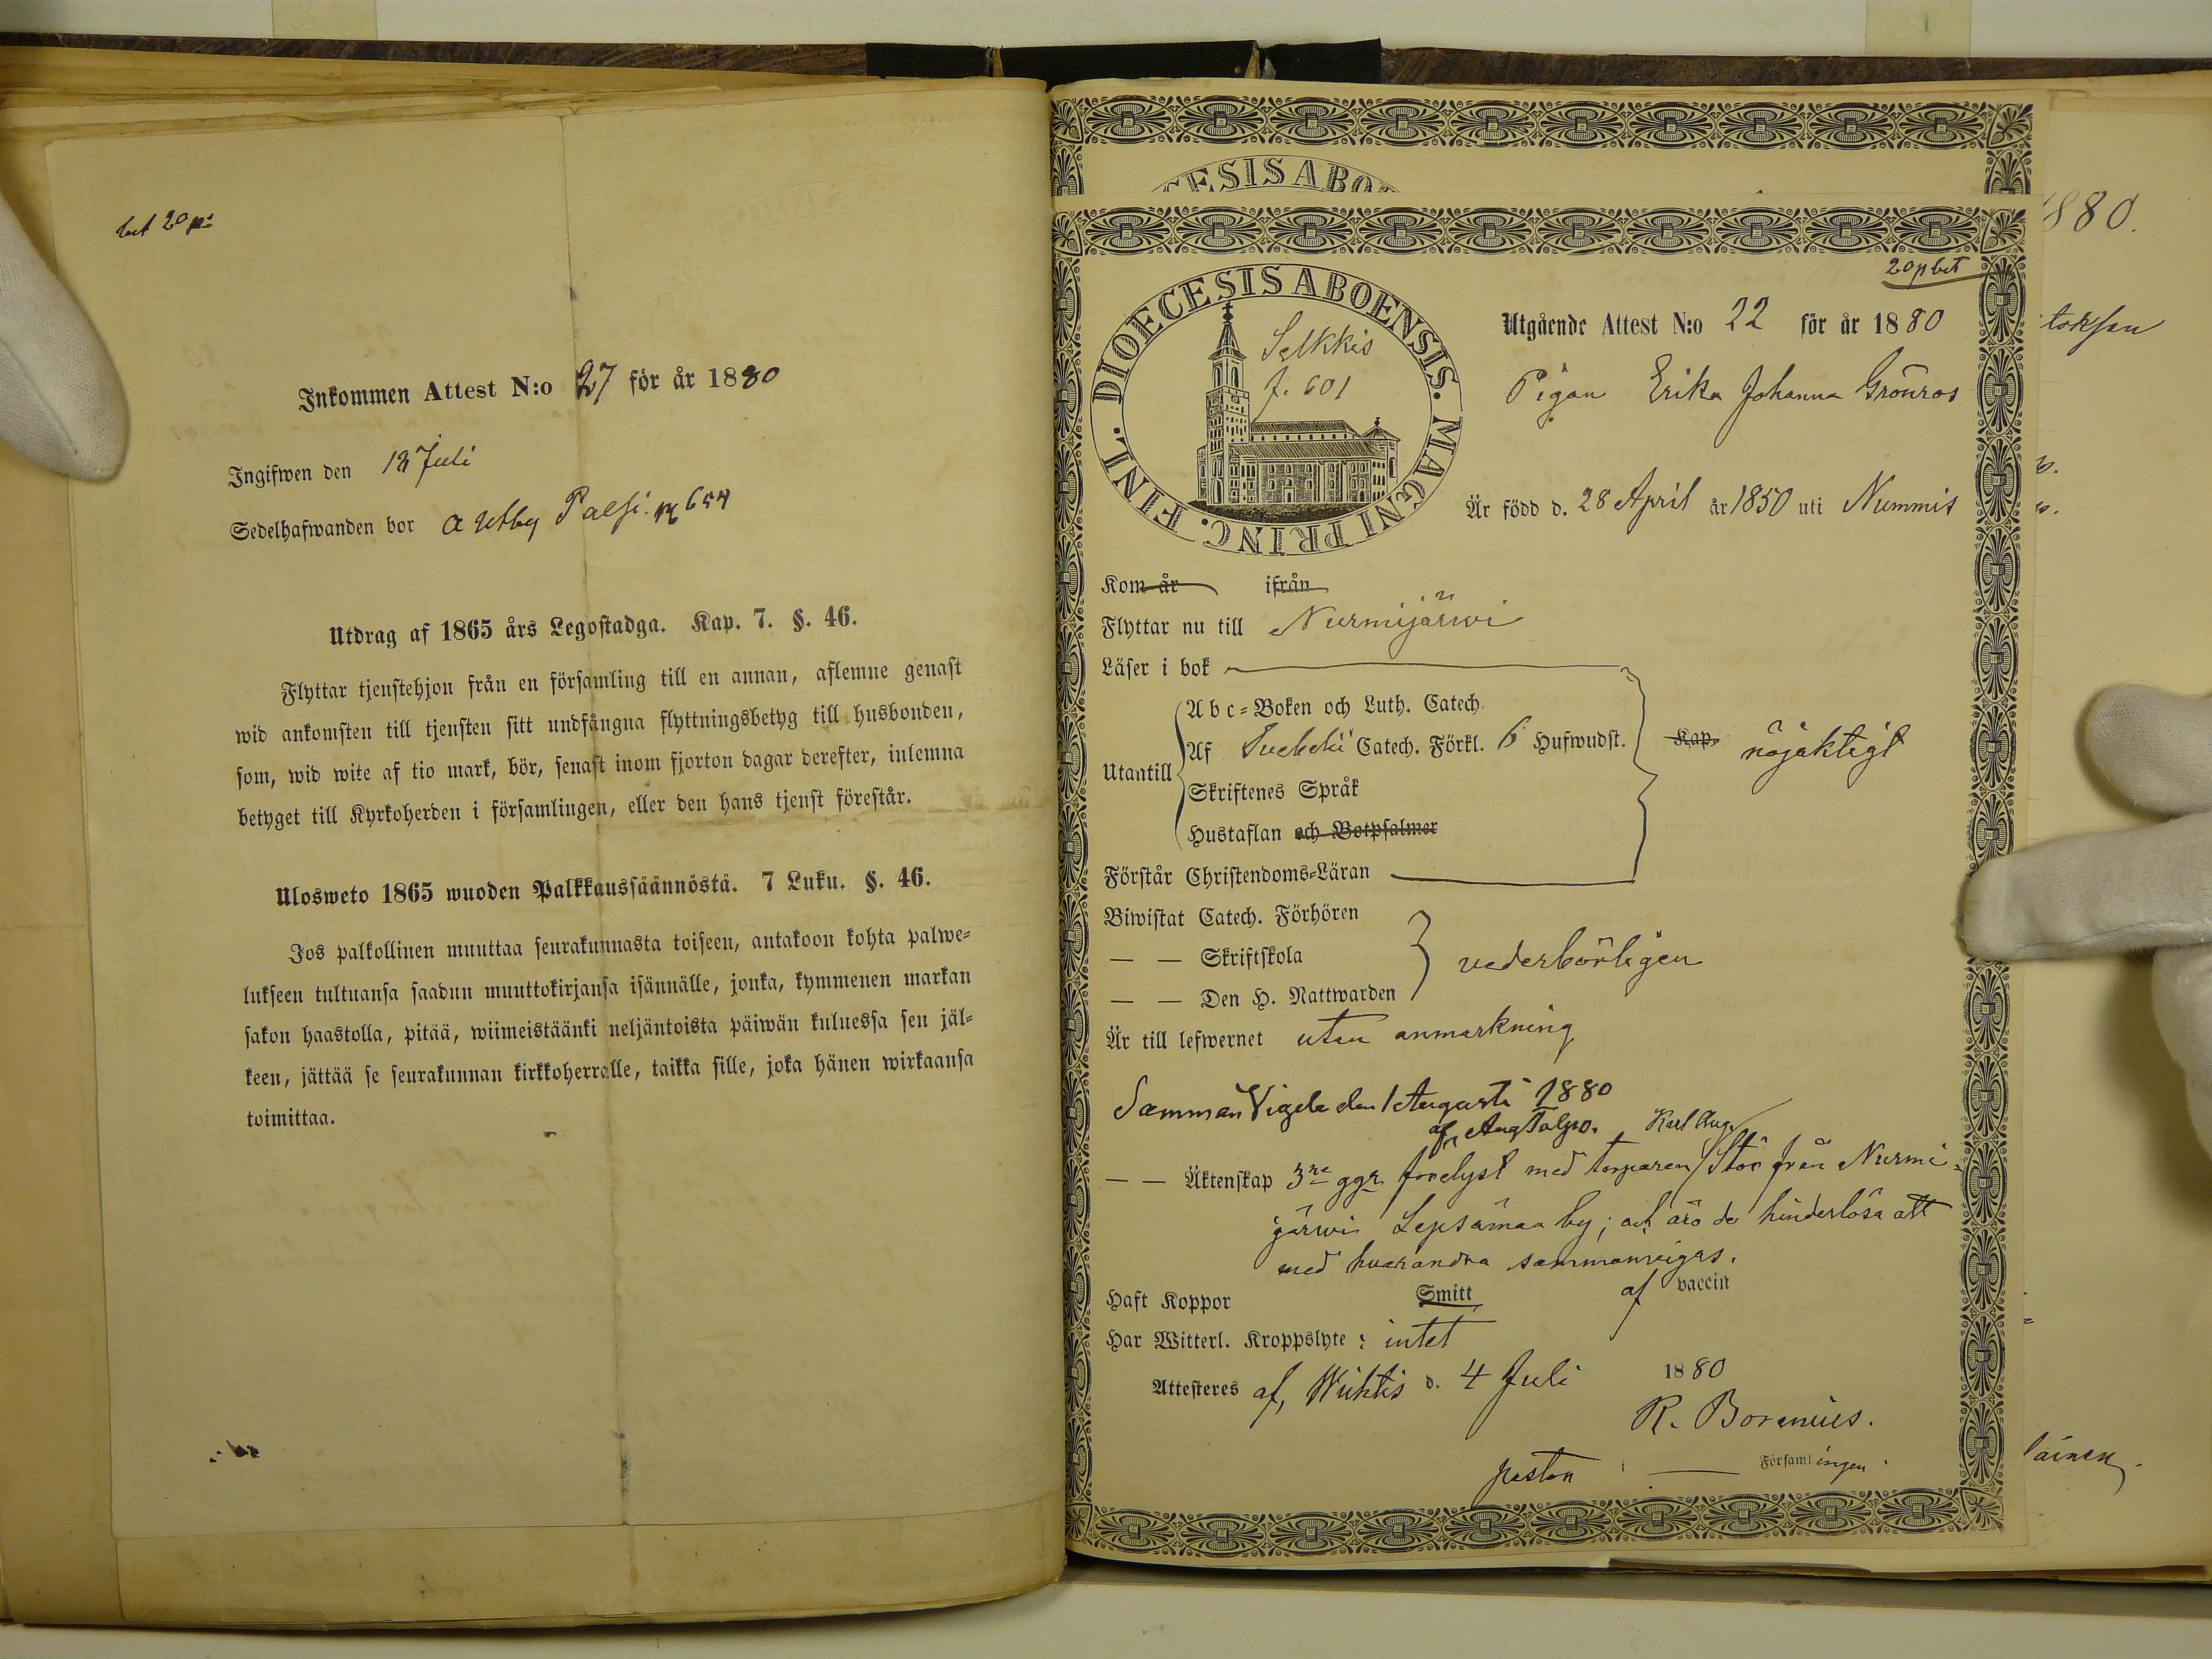 bet 20 p:
Inkommen Attest N:o 27 för år 1880
Ingifwen den 13 Juli
Sedelhafwanden bor å Utby Palsi. 654
Utdrag af 1865 års Legostadga. Kap. 7. §. 46.
Flyttar tjenstehjon från en församling till en annan, aflemne genast
wid ankomsten till tjensten sitt undfångna flyttningsbetyg till husbonden,
som, wid wite af tio mark, bör, senast inom fjorton dagar derefter, inlemna
betyget till Kyrkoherden i församlingen, eller den hans tjenst förestår.
Ulosweto 1865 wuoden Palkkaussäännöstä. 7 Luku. §. 46.
Jos palkollinen muuttaa seurakunnasta toiseen, antakoon kohta palwe-
lukseen tultuansa saadun muuttokirjansa isännälle, jonka, kymmenen markan
sakon haastolla, pitää, wiimeistäänki neljäntoista päiwän kuluessa sen jäl-
keen, jättää se seurakunnan kirkkoherralle, taikka sille, joka hänen wirkaansa
toimittaa.
CESIS ABO
DIOECESIS ABOENSIS. MAGNI PRINC. FINL.
Selkkis
f. 601
20 p bet
Utgående Attest N:o 22 för år 1880
Pigan Erika Johanna Grönros
Är född d. 28 April år 1850 uti Nummis
Kom år ifrån
Flyttar nu till Nurmijärwi
Läser i bok
Utantill
Abc-Boken och Luth. Catech.
Af Svebelii Catech. Förkl. 6 Hufwudst.
Skriftenes Språk
Hustaflan och Botpsalmer
Kap. nöjaktigt
Förstår Christendoms-Läran
Biwistat Catech. Förhören
— — Skriftskola
— — Den H. Nattwarden
vederbörligen
Är till lefwernet utan anmärkning
Samman Vigde den 1 Augusti 1880
af Aug Talpo. Karl Aug.
— — Äktenskap 3ne ggr förelyst med torparen Stör från Nurmi-
järwi Lepsämaa by; och äro de hinderlösa att
med hvarandra sammanvigas.
Haft Koppor Smitt af vaccin
Har Witterl. Kroppslyte: intet
Attesteres af, Wichtis d. 4 Juli 1880
R. Borenius.
pastor i Församlingen
880.
toksen
läinen